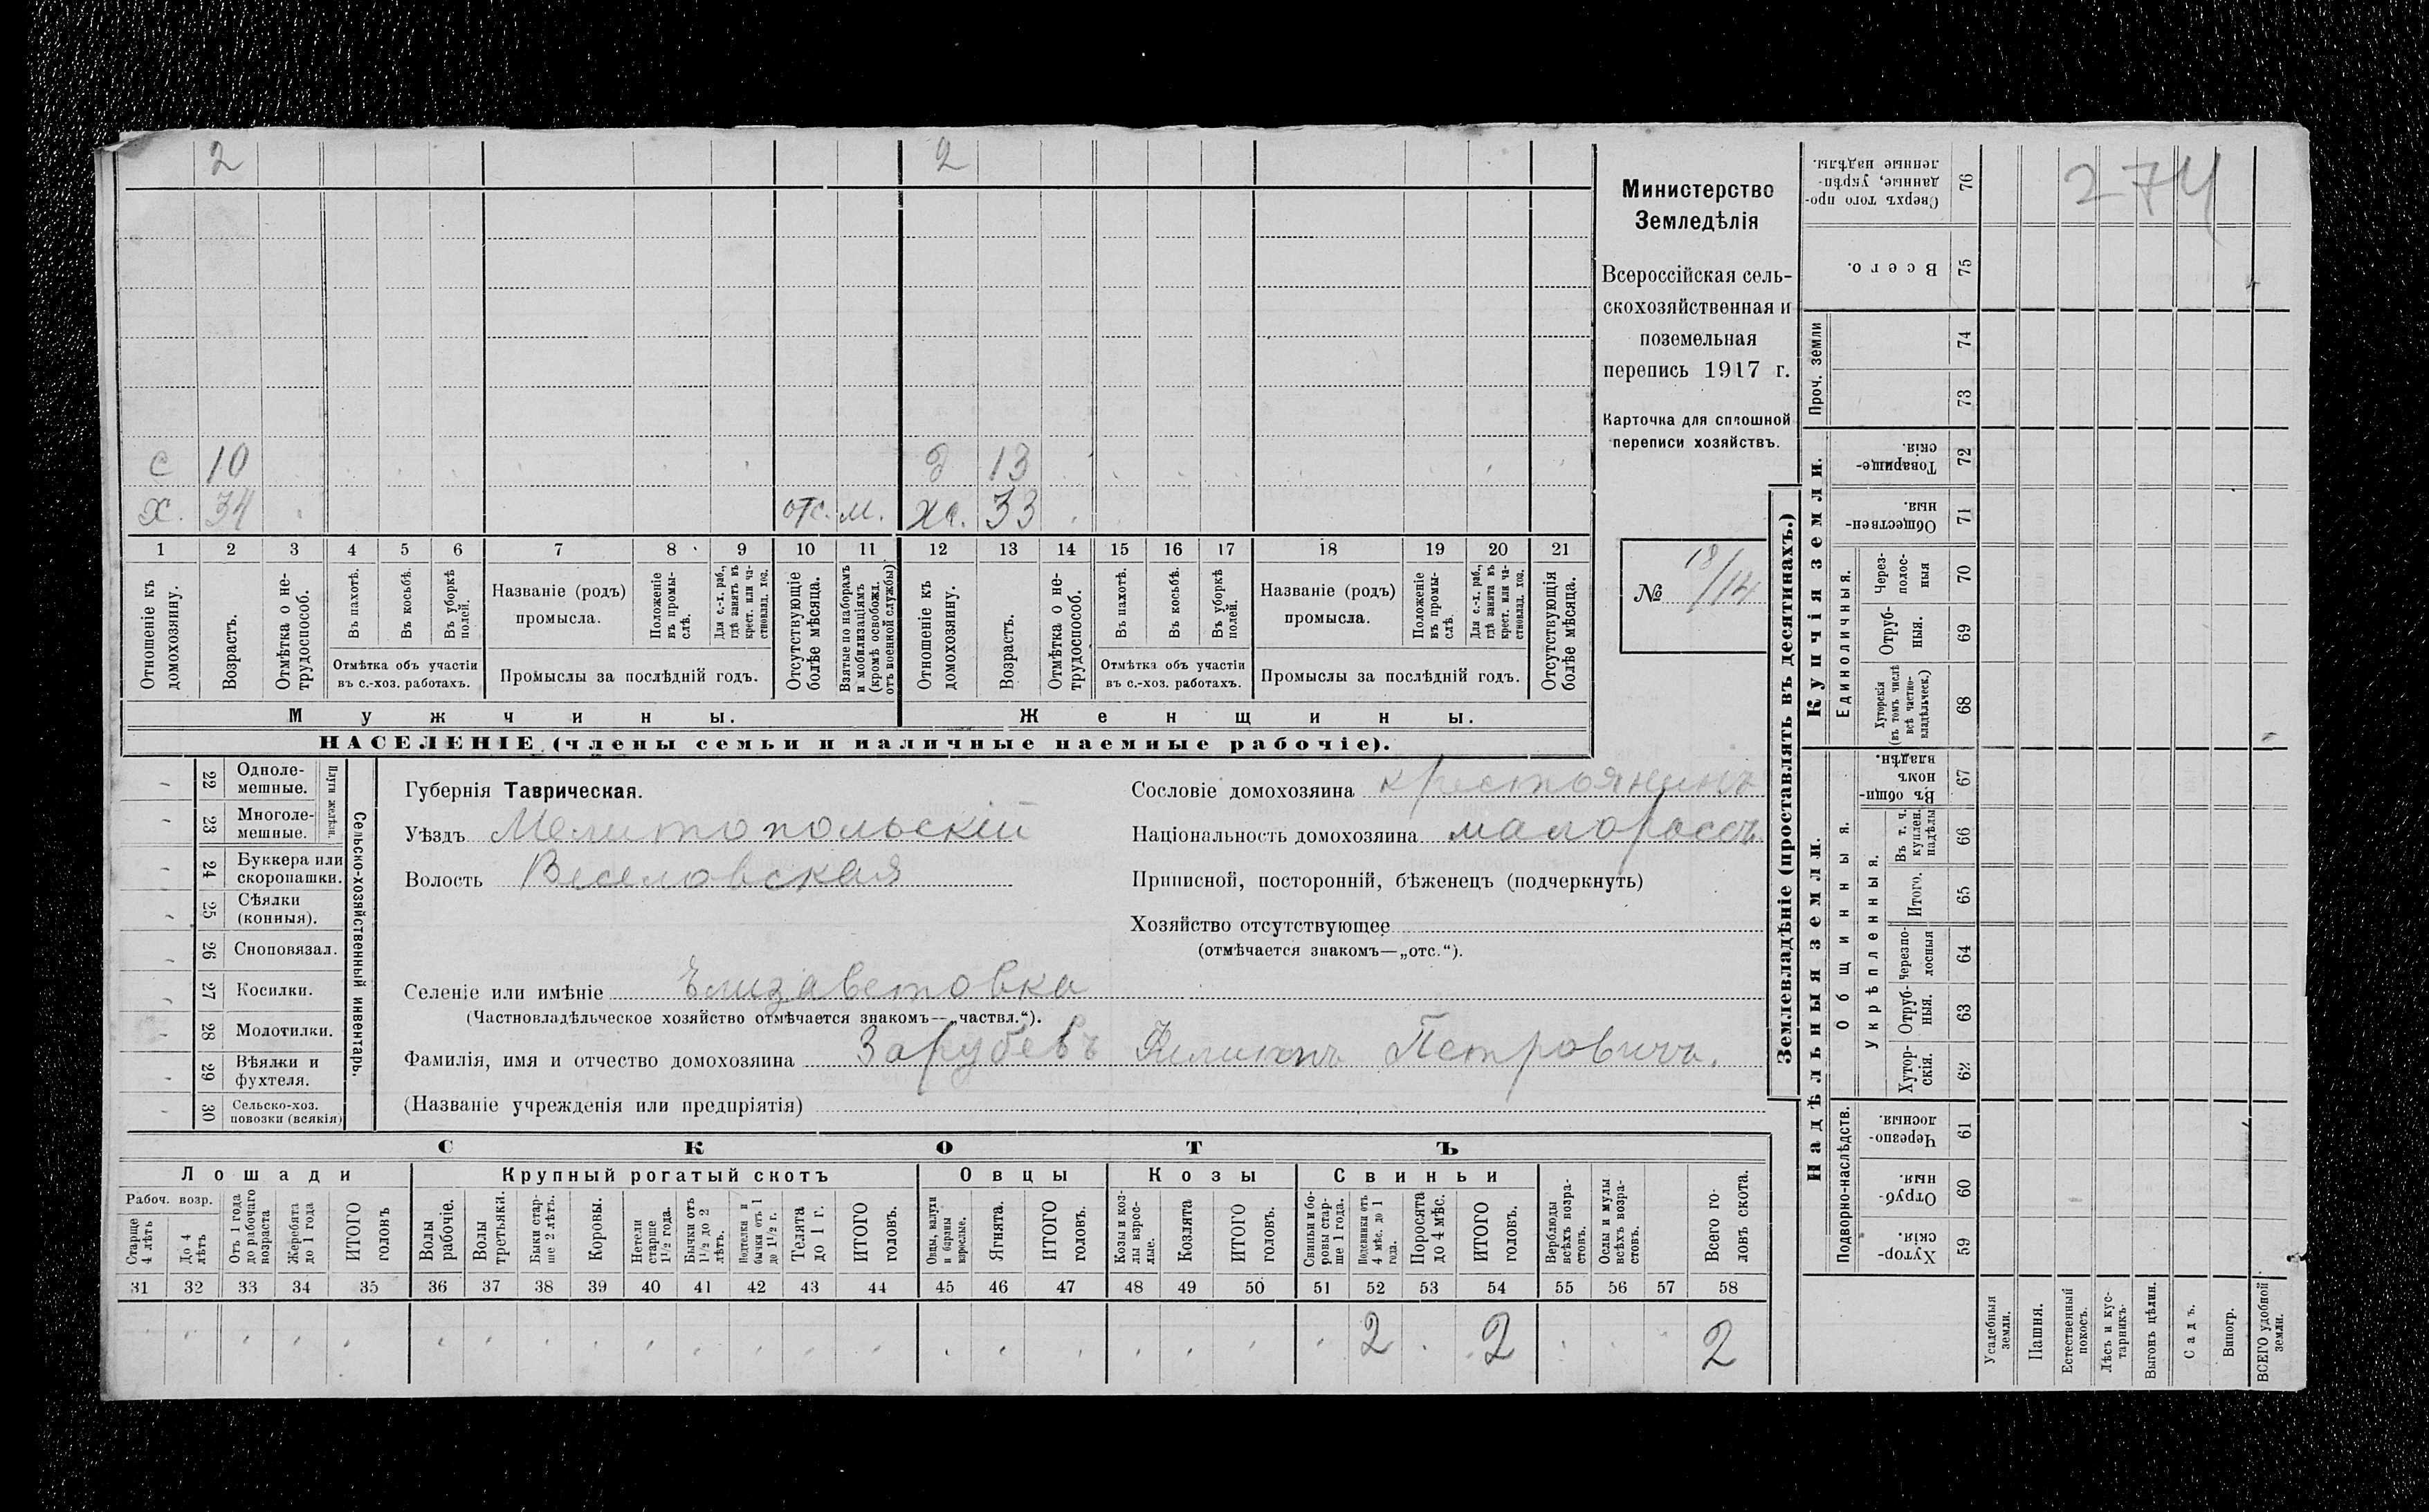 2 2
с 10 д 13
х. 34 отс. м. ха. 33
1 2 3 4 5 6 7 8 9 10 11 12 13 14 15 16 17 18 19 20 21
Отношеніе къ домохозяину.
Возрастъ.
Отмѣтка о не-
трудоспособ.
Въ пахотѣ.
Въ косьбѣ.
Въ уборкѣ
полей.
Отмѣтка объ участіи
въ с.-хоз. работахъ.
Названіе (родъ)
промысла.
Положеніе
въ промы-
слѣ.
Для с.-х. раб.,
гдѣ занятъ въ
крест. или ча-
стновлад. хоз.
Промыслы за послѣдній годъ.
Отсутствующіе
болѣе мѣсяца.
Взятые по наборамъ
и мобилизаціямъ
(кромѣ освобожд.
отъ военной службы)
Отношеніе къ
домохозяину.
Возрастъ.
Отмѣтка о не-
трудоспособ.
Въ пахотѣ.
Въ косьбѣ.
Въ уборкѣ
полей.
Отмѣтка объ участіи
въ с.-хоз. работахъ.
Названіе (родъ)
промысла.
Положеніе
въ промы-
слѣ.
Для с.-х. раб.,
гдѣ занята въ
крест. или ча-
стновлад. хоз.
Промыслы за послѣдній годъ.
Отсутствующія
болѣе мѣсяца.
Мужчины. Женщины.
НАСЕЛЕНІЕ (члены семьи и наличные наемные рабочіе).
Министерство
Земледѣлія
Всероссійская сель-
скохозяйственная и
поземельная
перепись 1917 г.
Карточка для сплошной
переписи хозяйствъ.
№ 18/14
22 Одноле-
мешные.
23 Многоле-
мешные.
Плуги желѣзн.
24 Буккера или
скоропашки.
25 Сѣялки
(конныя).
26 Сноповязал.
27 Косилки.
28 Молотилки.
29 Вѣялки и
фухтеля.
30 Сельско-хоз.
повозки (всякія)
Сельско-хозяйственный инвентарь.
Губернія Таврическая.
Уѣздъ Мелитопольскій
Волость Веселовская
Сословіе домохозяина крестьянинъ
Національность домохозяина малороссъ.
Приписной, посторонній, бѣженецъ (подчеркнуть)
Хозяйство отсутствующее
(отмѣчается знакомъ—„отс.“).
Селеніе или имѣніе Елизаветовка
(Частновладѣльческое хозяйство отмѣчается знакомъ—„частвл.“).
Фамилія, имя и отчество домохозяина Зарубевъ Филиппъ Петровичъ.
(Названіе учрежденія или предпріятія)
СКОТЪ
Лошади Крупный рогатый скотъ Овцы Козы Свиньи
Рабоч. возр.
Старше
4 лѣтъ
До 4
лѣтъ
Отъ 1 года
до рабочаго
возраста
Жеребята
до 1 года
ИТОГО
головъ
Волы
рабочіе.
Волы
третьяки.
Быки стар-
ше 2 лѣтъ.
Коровы.
Нетели
старше
1 1/2 года.
Бычки отъ
1 1/2 до 2
лѣтъ.
Подтелки и
бычки отъ 1
до 1 1/2 г.
Телята
до 1 г.
ИТОГО
головъ.
Овцы, валухи
и бараны
взрослые.
Ягнята.
ИТОГО
головъ.
Козы и коз-
лы взрос-
лые.
Козлята
ИТОГО
головъ.
Свиньи и бо-
ровы стар-
ше 1 года.
Подсвинки отъ
4 мѣс. до 1
года.
Поросята
до 4 мѣс.
ИТОГО
головъ.
Верблюды
всѣхъ возра-
стовъ.
Ослы и мулы
всѣхъ возра-
стовъ.
Всего го-
ловъ скота.
31 32 33 34 35 36 37 38 39 40 41 42 43 44 45 46 47 48 49 50 51 52 53 54 55 56 57 58
2 2 2
Землевладѣніе (проставлять въ десятинахъ.)
274
76 Сверхъ того про-
данные, укрѣп-
ленные надѣлы.
75 Всего.
Проч. земли
74
73
Купчія земли.
72 Товарище-
скія.
71 Обществен-
ныя.
Единоличныя.
70 Через-
полос-
ныя
69 Отруб-
ныя.
68 Хуторскія
(въ томъ числѣ
всѣ частно-
владѣльческ.)
Надѣльныя земли.
Общинныя.
67 Въ общи-
номъ
владѣн.
Укрѣпленныя.
66 Въ т. ч.
куплен.
надѣлы
65 Итого.
64 Черезпо-
лосныя
63 Отруб-
ныя.
62 Хутор-
скія.
Подворно-наслѣдств.
61 Черезпо-
лосныя.
60 Отруб-
ныя.
59 Хутор-
скія.
Усадебныя
земли.
Пашня.
Естественный
покосъ.
Лѣсъ и кус-
тарникъ.
Выгонъ цѣлин.
Садъ.
Виногр.
ВСЕГО удобной
земли.